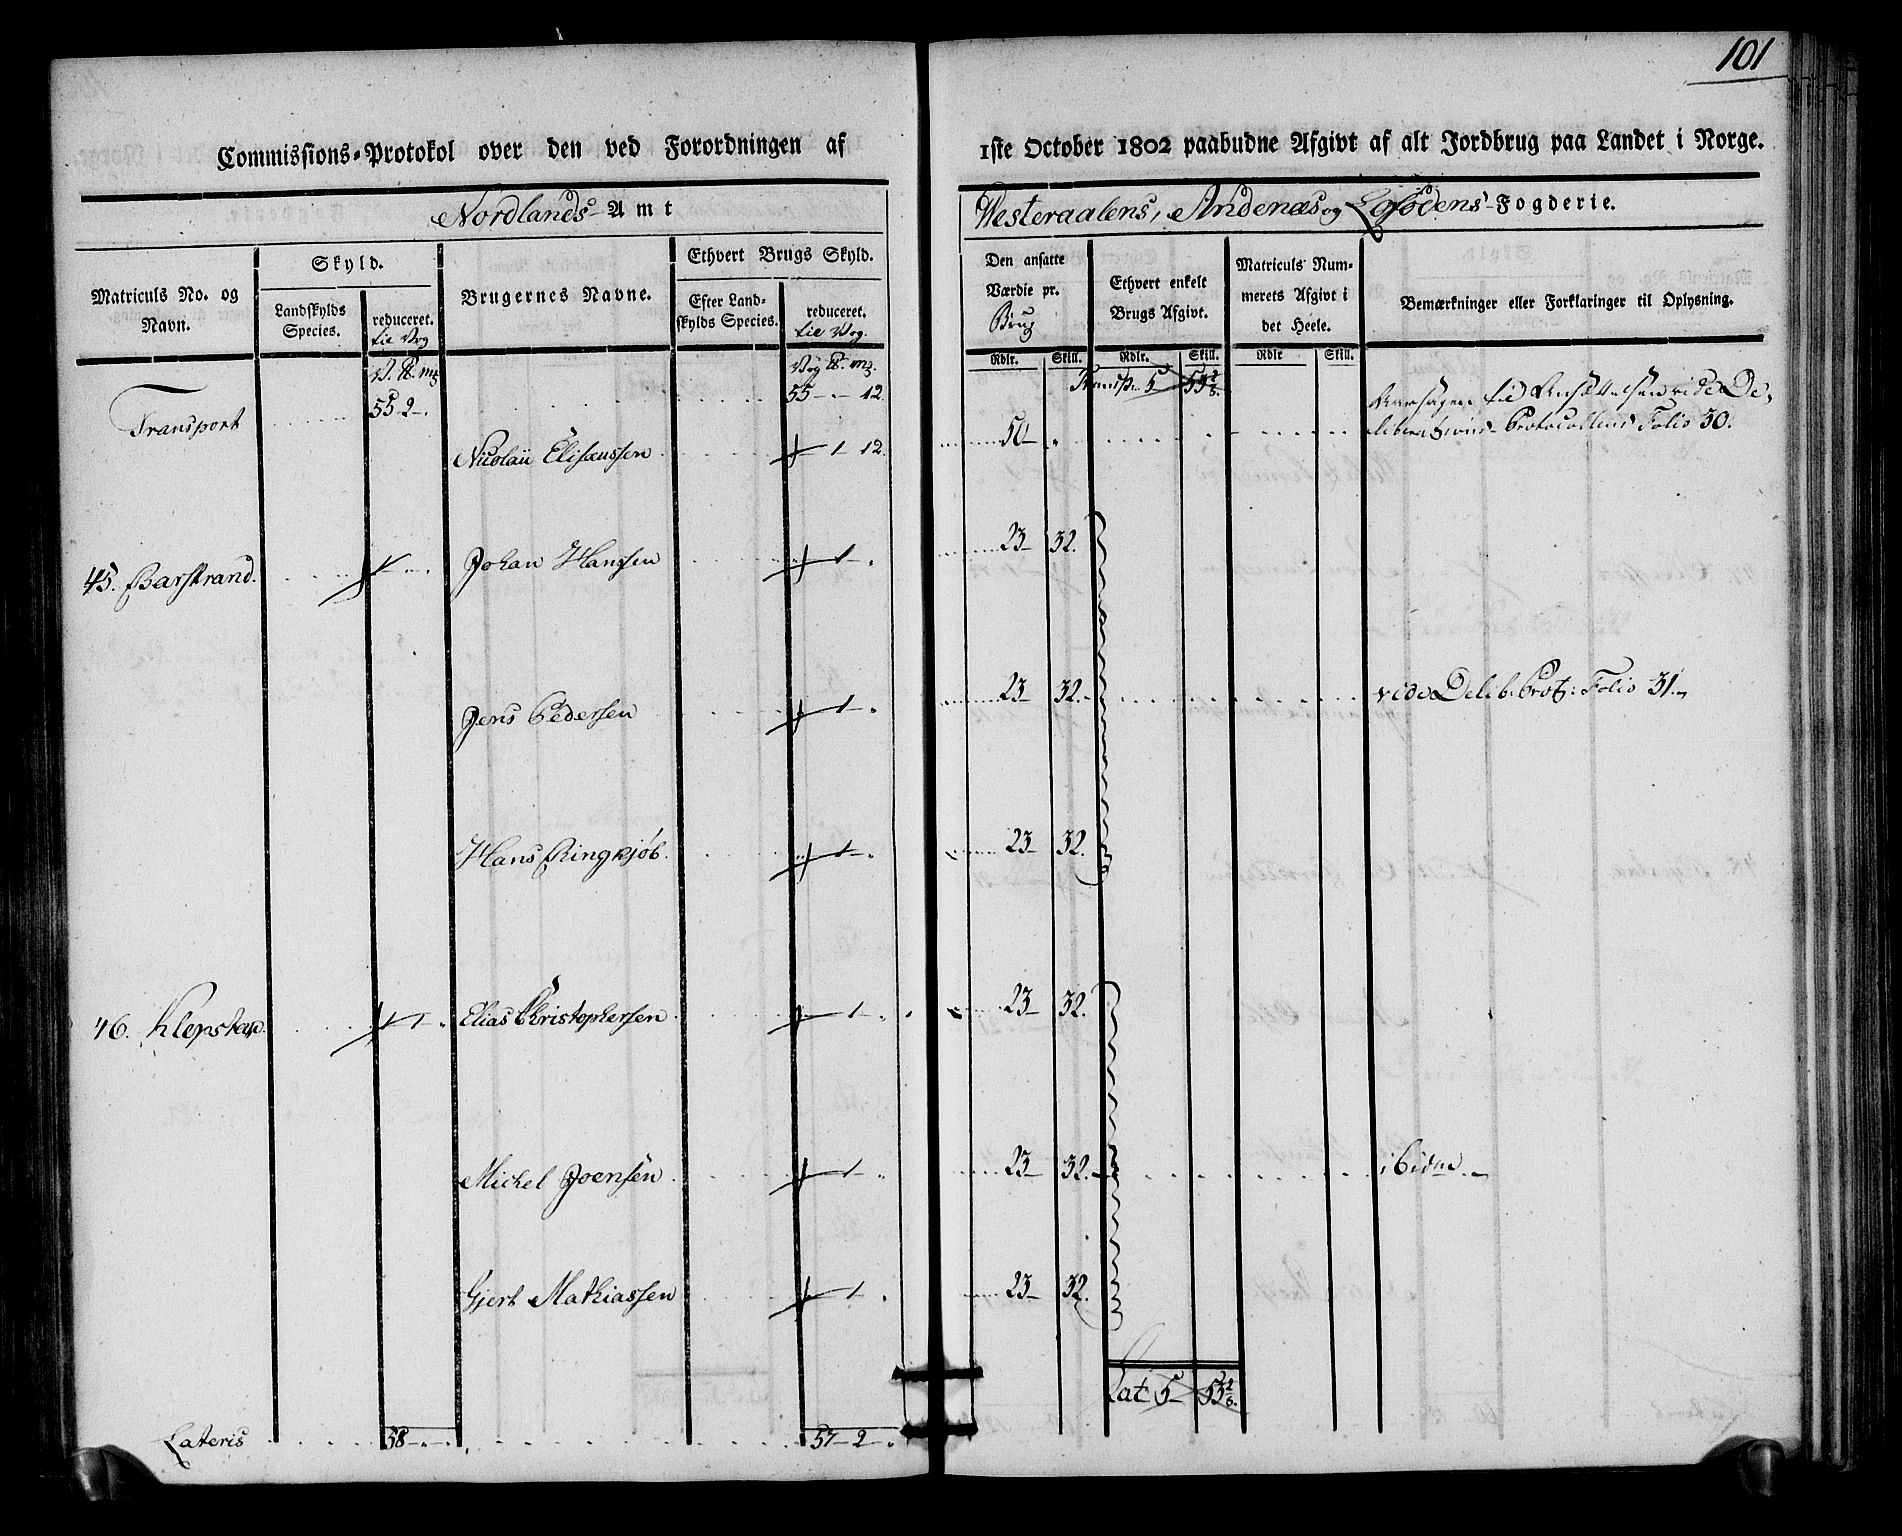 101
Commissions-Protokol over den ved Forordningen af 1ste October 1802 paabudne Afgivt af alt Jordbrug paa Landet i Norge.
Nordlands-Amt
Westeraalens, Andenæs og Lofodens-Fogderie.
Matriculs No. og Navn.
Skyld.
Landskylds Species.
reduceret. til Vog
Brugernes Navne.
Ethvert Brugs Skyld.
Efter Landskylds Species.
reduceret. til Vog.
Den ansatte Værdie pr. Brug
Ethvert enkelt Brugs Afgivt.
Matriculs Nummerets Afgivt i det Heele.
Bemærkninger eller Forklaringer til Oplysning.
Rdlr. Skill. Rdlr. Skill. Rdlr Skill.
V. ℔. mk Vog ℔. mk.
Transport 55 2 -. 55 - - 12. Transp. 5 53 2/8.
Nicolai Elisæussen + 1 - 12. 50 - Aarsagen til Ansættelsen vide De-
liberations-Protocollens Folio 30.
45. Barstrand. Johan Hanssen + 1 - 23 - 32.
Jens Pedersen + 1 - 23 - 32. vide Delib. Prot: Folio 31.
Hans Ringkjøb. + 1 - 23 - 32.
46. Klepstad. + 1 - Elias Christophersen + 1 - 23 - 32.
Michel Joensen + 1 - 23 - 32. ibidm.
Gjert Mathiassen + 1 - 23 - 32.
Lat. 5 53 2/8.
Lateris 58 - - 57 - 2 -